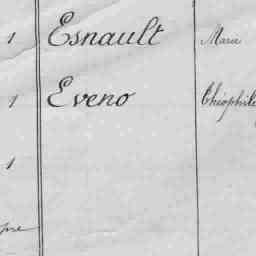 1 Esnault Marie
1 Eveno Théophile
1